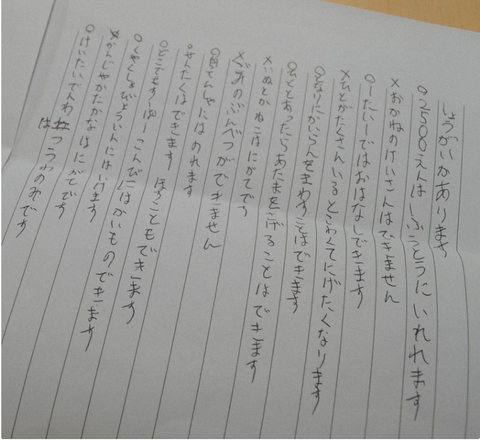 しょうがいかあります
○2500えんは いれれます
×おかねのけいさんはできません
○一たい一ではおはなしできます
×ひとがたくさんいるとこわくてにげたくなります
○となりにかいらんをまわすことはできます
○ひとあったらあたまをさげることはできます
×いぬとかねこはにがてです
×ごみのぶんべつができません
○自てんしゃにはのれます
○せんたくはできます ほすこともできます
○どこでもすーぱーこんびにはかいものできます
○くやくしょびょういんにはいけます
×かんじやかたかなはにがてです
○けいたいでんわ
は つうわのみです